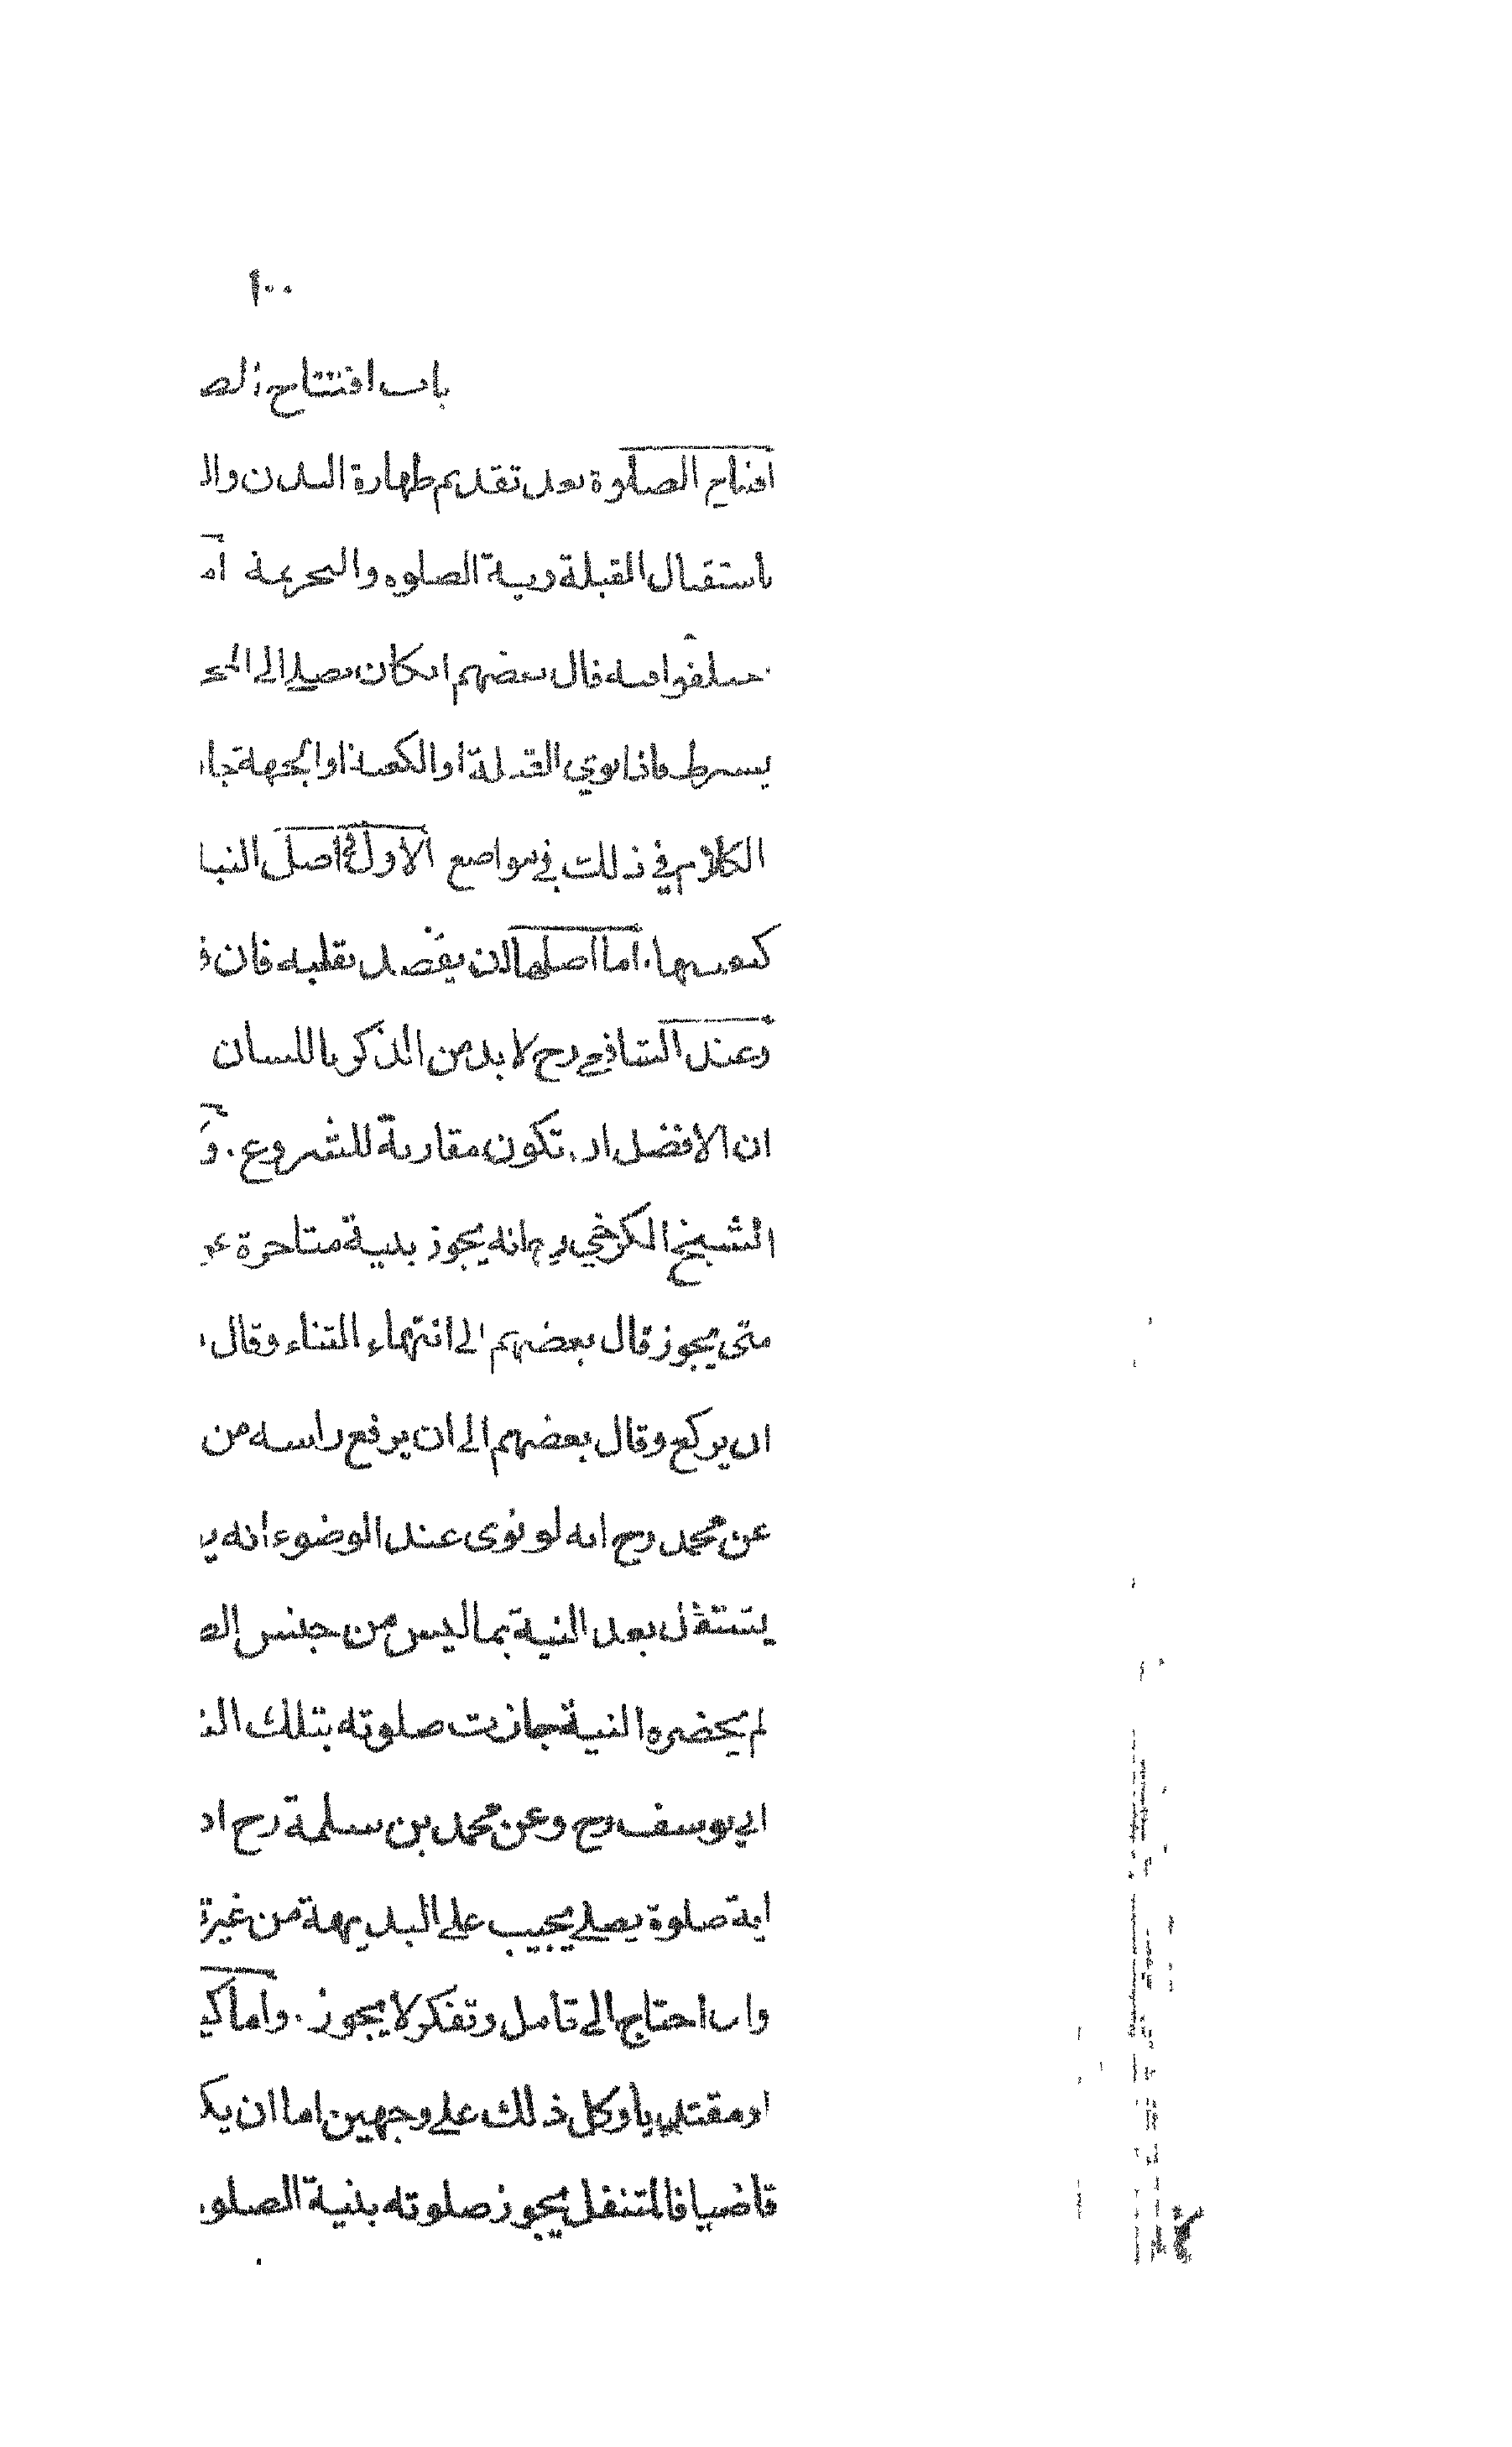 ١٠٠
باب افتتاح الص
افتتاح الصلوة بعد تقديم طهارة البدن وال
باستقبال القبلة ونية الصلوه والتحريمة ام
فيه قال بعضهم ان كان يصلي الى المح
يشرط فاذا نوي القبلة او الكعبة او الجهة جا
الكلام في ذلك في مواضع الاول في اصل النيـ
اما اصلها ان يقصد بقلبه فان
وعند الشافعي رح لا بد من الذكر باللسان
ان الافضل ان تكون مقارنة للشروع . و
الشيخ الكرخي رح انه يجوز بنية متاخرة
متى يجوز قال بعضهم الى انتهاء الثناء وقال
ان يركع وقال بعضهم الى ان يرفع راسه من
عن محمد رح انه لو نوى عند الوضوء انه يـ
يشتغل بعد النية بما ليس من جنس الص
لم يحضره النية جازت صلوته بتلك الن
ابي يوسف رح وعن محمد بن سلمة رح ا
اية صلوة يصلي يجيب على البديهة من غير
وان احتاج الى تامل وتفكر لا يجوز . واما كي
او مقتديا وكل ذلك على وجهين اما ان يك
قاضيا فالمتنفل يجوز صلوته بنية الصلو